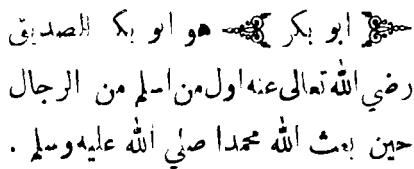 ﴿ ابو بكر ﴾ هو ابو بكر الصديق
رضي الله تعالى عنه اول من اسلم من الرجال
حين بعث الله محمدا صلي الله عليه وسلم .